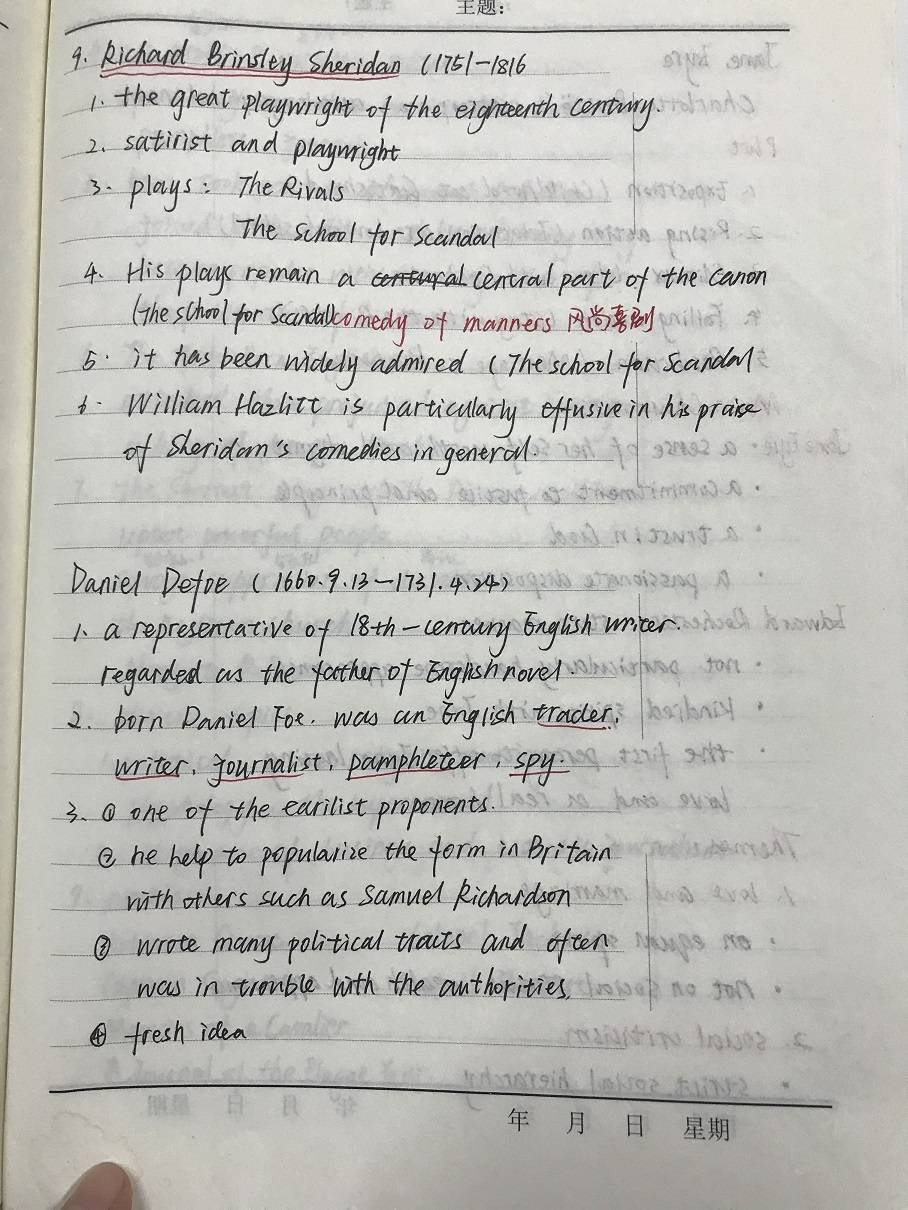 主题:
9. Richard Brinsley Sheridan (1751-1816
1. the great playwright of the eighteenth century.
2. satirist and playwright
3. plays: The Rivals
The School for Scandal
4. His plays remain a centural central part of the canon
(The school for Scandal) comedy of manners 风尚喜剧
5. it has been widely admired (The school for Scandal
6. William Hazlitt is particularly effusive in his praise
of Sheridan's comedies in general.
Daniel Defoe (1660.9.13-1731.4.24)
1. a representative of 18th-century English writer.
regarded as the father of English novel.
2. born Daniel Foe. was an English trader,
writer, journalist, pamphleteer, spy.
3. ① one of the earilist proponents.
② he help to popularize the form in Britain
with others such as Samuel Richardson
③ wrote many political tracts and often
was in trouble with the authorities.
④ fresh idea
年 月 日 星期